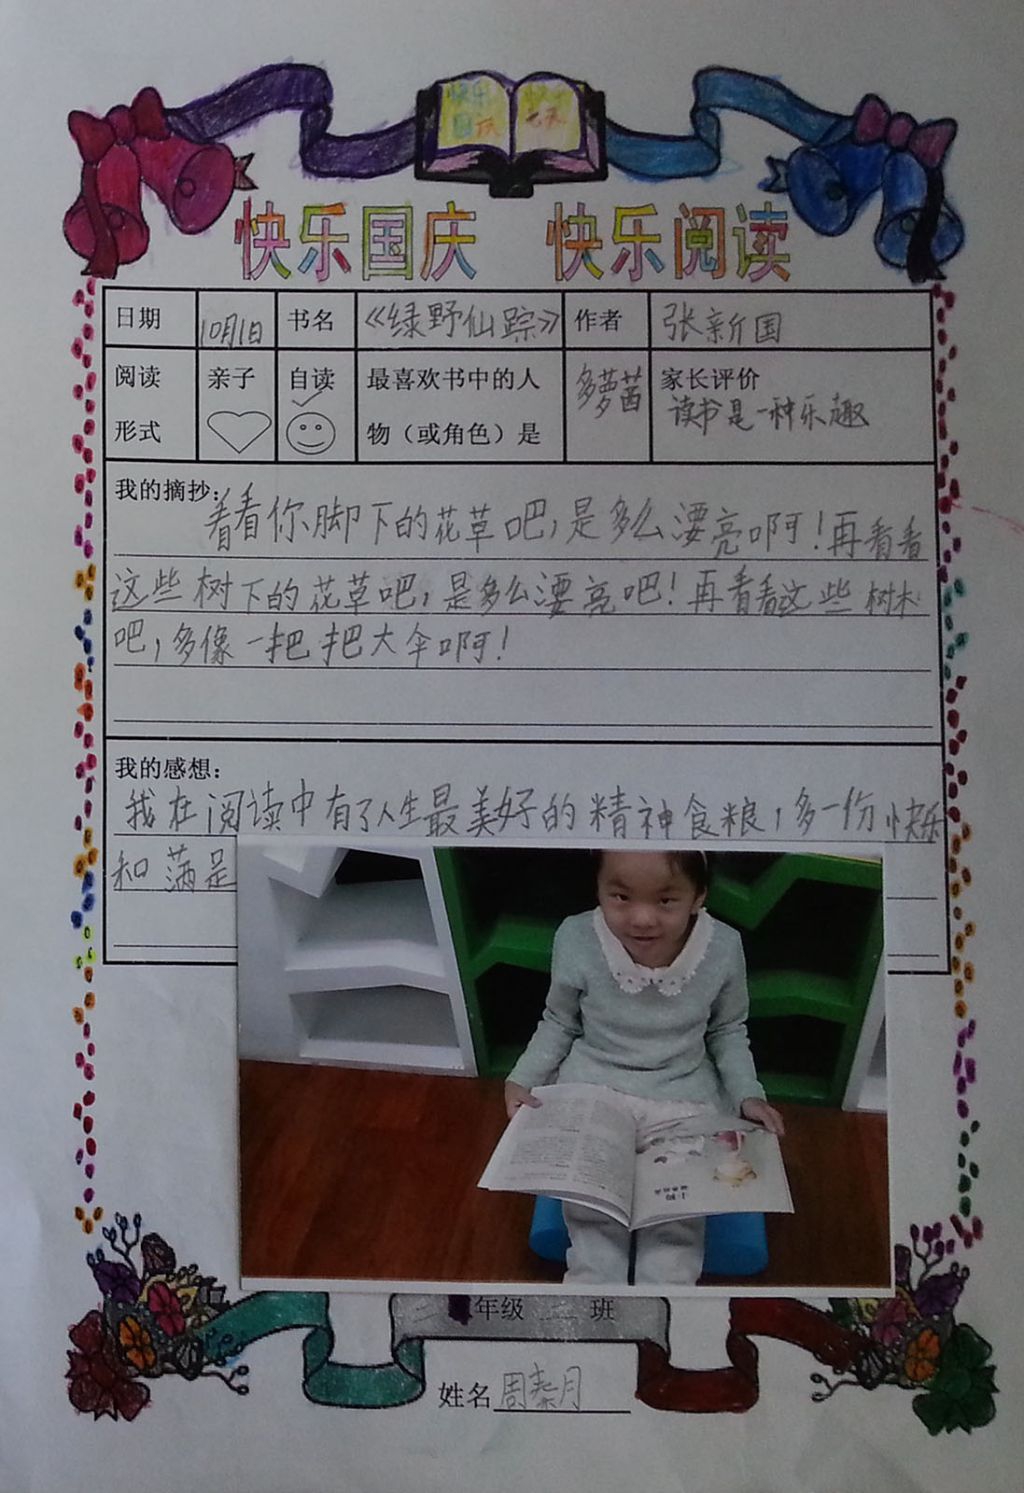 快乐 快乐
国庆
快乐国庆 快乐阅读
日期 10月1日 书名 《绿野仙踪》 作者 张新国
阅读 亲子 自读 最喜欢书中的人 多萝茜 家长评价
形式 物（或角色）是 读书是一种乐趣
我的摘抄：
看看你脚下的花草吧，是多么漂亮啊！再看看
这些树下的花草吧，是多么漂亮吧！再看看这些树木
吧，多像一把把大伞啊！
我的感想：
我在阅读中有了人生最美好的精神食粮，多一份快乐
和满足
年级 班
姓名 周秦月